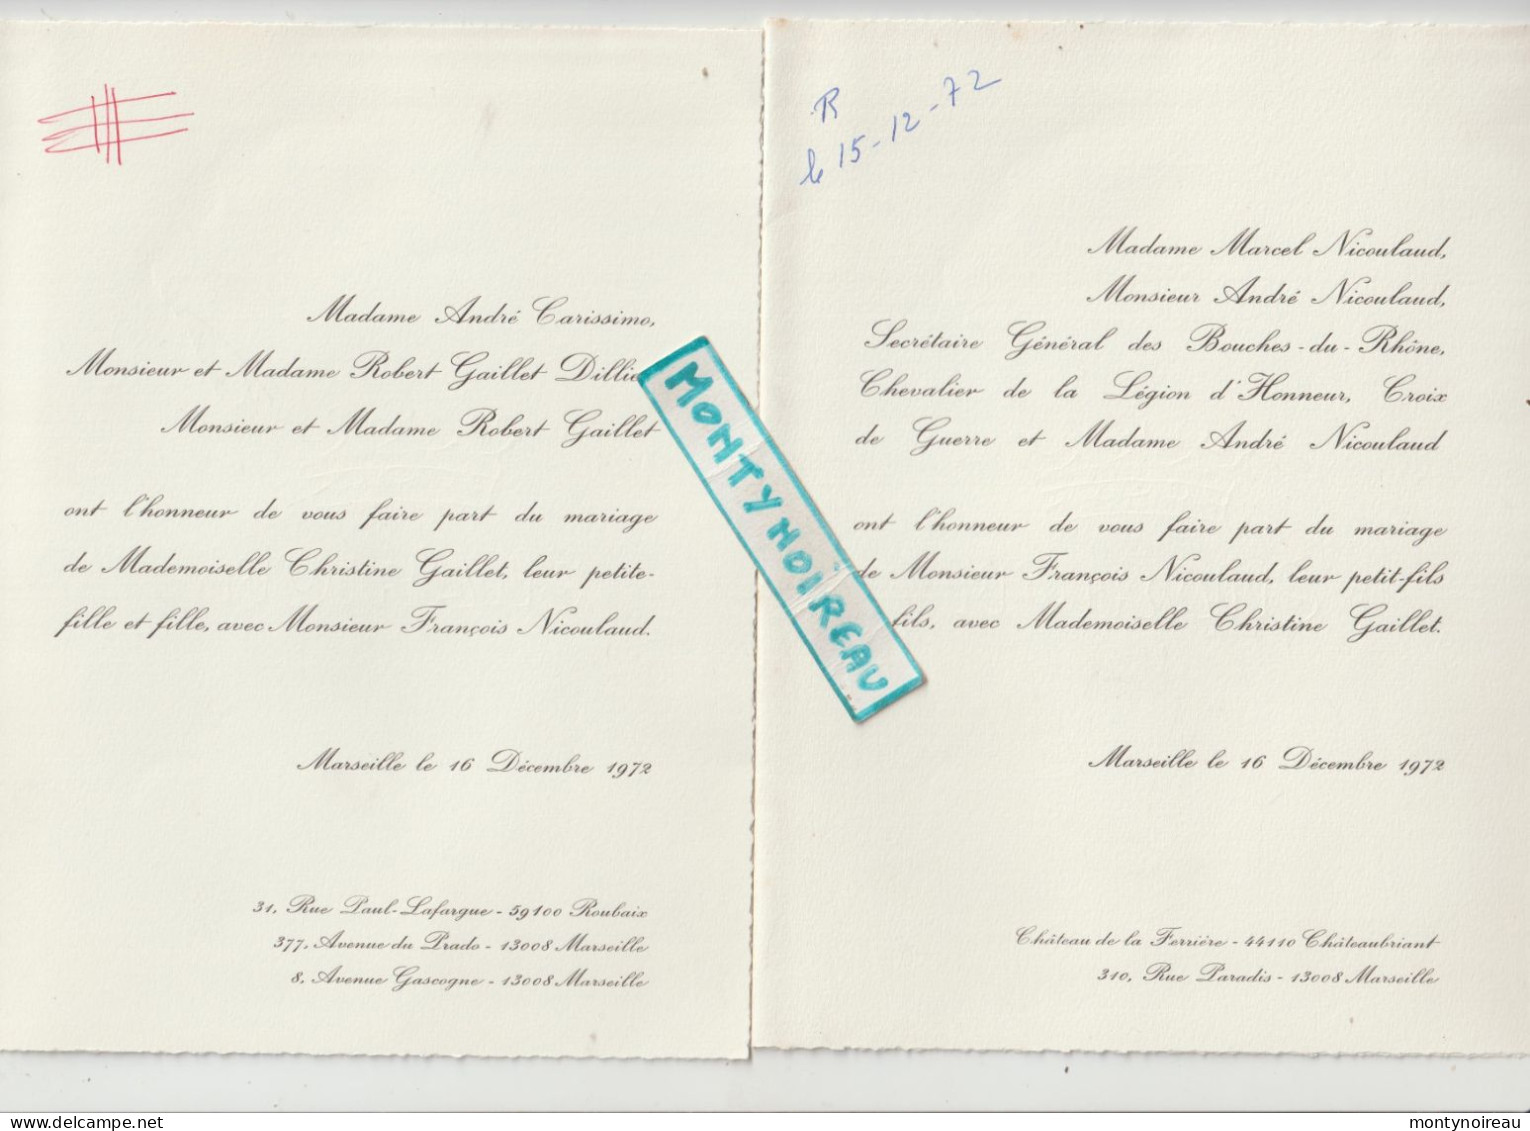 Madame André Carissimo,
Monsieur et Madame Robert Gaillet Dillie
Monsieur et Madame Robert Gaillet
ont l'honneur de vous faire part du mariage
de Mademoiselle Christine Gaillet, leur petite-
fille et fille, avec Monsieur François Nicoulaud.
Marseille le 16 Décembre 1972
31, Rue Paul-Lafargue - 59100 Roubaix
377, Avenue du Prado - 13008 Marseille
8, Avenue Gascogne - 13008 Marseille
MONTYNOIREAU
R
le 15-12-72
Madame Marcel Nicoulaud,
Monsieur André Nicoulaud,
Secrétaire Général des Bouches-du-Rhône,
Chevalier de la Légion d'Honneur, Croix
de Guerre et Madame André Nicoulaud
ont l'honneur de vous faire part du mariage
de Monsieur François Nicoulaud, leur petit-fils
fils, avec Mademoiselle Christine Gaillet.
Marseille le 16 Décembre 1972
Château de la Ferrière - 44110 Châteaubriant
310, Rue Paradis - 13008 Marseille
delcampe.net
montynoireau